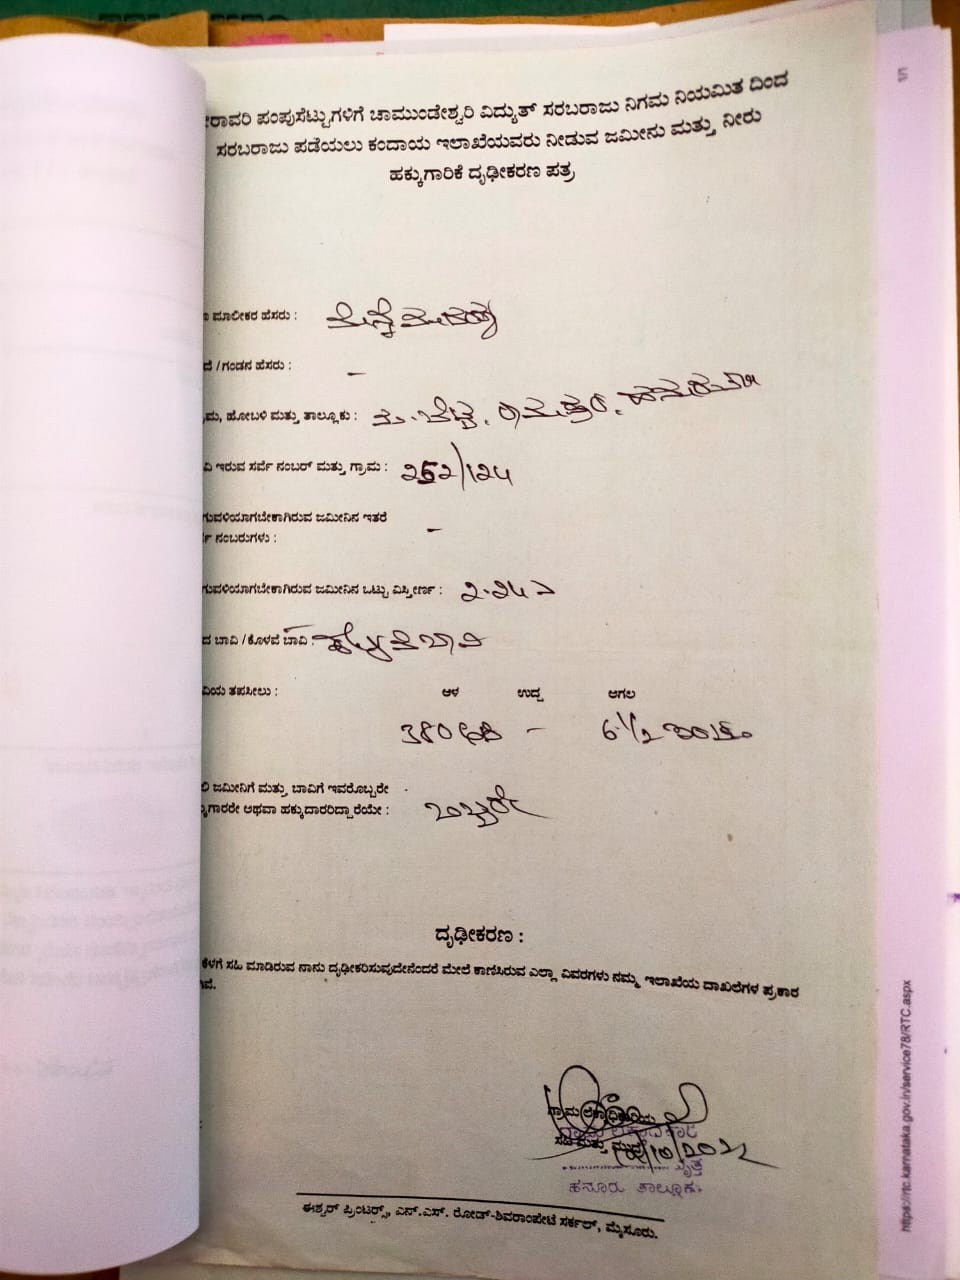 ಪಂಪುಸೆಟ್ಟುಗಳಿಗೆ ಚಾಮುಂಡೇಶ್ವರಿ ವಿದ್ಯುತ್ ಸರಬರಾಜು ನಿಗಮ ನಿಯಮಿತ ದಿಂದ
ಸರಬರಾಜು ಪಡೆಯಲು ಕಂದಾಯ ಇಲಾಖೆಯವರು ನೀಡುವ ಜಮೀನು ಮತ್ತು ನೀರು
ಹಕ್ಕುಗಾರಿಕೆ ದೃಢೀಕರಣ ಪತ್ರ
ಮಾಲೀಕರ ಹೆಸರು :
/ಗಂಡನ ಹೆಸರು : -
ಹೋಬಳಿ ಮತ್ತು ತಾಲ್ಲೂಕು : ಮ.ಬೆಟ್ಟ, ರಾಮಪುರ,
ಇರುವ ಸರ್ವೆ ನಂಬರ್ ಮತ್ತು ಗ್ರಾಮ : 252/124
ಗುವಳಿಯಾಗಬೇಕಾಗಿರುವ ಜಮೀನಿನ ಇತರೆ -
ನಂಬರುಗಳು :
ಗುವಳಿಯಾಗಬೇಕಾಗಿರುವ ಜಮೀನಿನ ಒಟ್ಟು ವಿಸ್ತೀರ್ಣ : 2.24
ದ ಬಾವಿ / ಕೊಳವೆ ಬಾವಿ :
ವಿಯ ತಪಸೀಲು : ಆಳ ಉದ್ದ ಅಗಲ
380 ಅಡಿ - 6 1/2 ಇಂಚು
ಜಮೀನಿಗೆ ಮತ್ತು ಬಾವಿಗೆ ಇವರೊಬ್ಬರೇ
ಗಾರರೇ ಅಥವಾ ಹಕ್ಕುದಾರರಿದ್ದಾರೆಯೇ : ಒಬ್ಬರೇ
ದೃಢೀಕರಣ :
ಕೆಳಗೆ ಸಹಿ ಮಾಡಿರುವ ನಾನು ದೃಢೀಕರಿಸುವುದೇನೆಂದರೆ ಮೇಲೆ ಕಾಣಿಸಿರುವ ಎಲ್ಲಾ ವಿವರಗಳು ನಮ್ಮ ಇಲಾಖೆಯ ದಾಖಲೆಗಳ ಪ್ರಕಾರ
ವೆ.
ಗ್ರಾಮಲೆಕ್ಕಾಧಿಕಾರಿಯ
ಸಹಿ ಮತ್ತು ಮುದ್ರೆ
ವೃತ್ತ
ಹನೂರು ತಾಲ್ಲೂಕು
ಈಶ್ವರ್ ಪ್ರಿಂಟರ್ಸ್, ಎನ್.ಎಸ್. ರೋಡ್-ಶಿವರಾಂಪೇಟೆ ಸರ್ಕಲ್, ಮೈಸೂರು.
1/1
https://rtc.karnataka.gov.in/service78/RTC.aspx